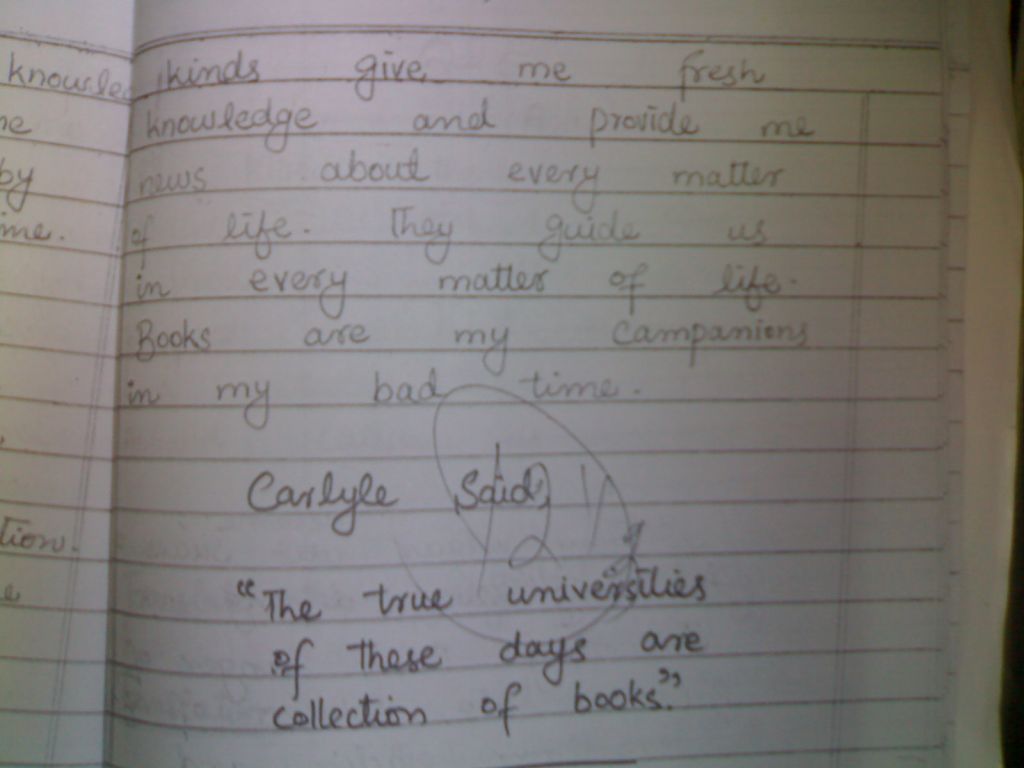 knowled
he
by
me.
tion.
e
kinds give me fresh
knowledge and provide me
news about every matter
of life. They guide us
in every matter of life.
Books are my campanions
in my bad time.
Carlyle Said,
"The true universities
of these days are
collection of books."